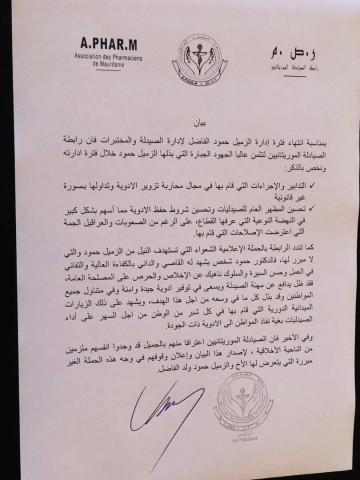 A.PHAR.M
Association des Pharmaciens
de Mauritanie
ر.ص.م
رابطة الصيادلة الموريتانيين
بيان
بمناسبة انتهاء فترة إدارة الزميل حمود الفاضل لإدارة الصيدلة والمختبرات فان رابطة
الصيادلة الموريتانيين لتثمن عاليا الجهود الجبارة التي بذلها الزميل حمود خلال فترة ادارته
ونخص بالذكر:
✓ التدابير والإجراءات التي قام بها في مجال محاربة تزوير الادوية وتداولها بصورة
غير قانونية
✓ تحسين المظهر العام للصيدليات وتحسين شروط حفظ الادوية مما أسهم بشكل كبير
في النهضة النوعية التي عرفها القطاع، على الرغم من الصعوبات والعراقيل الجمة
التي اعترضت الإصلاحات التي قام بها.
كما تندد الرابطة بالحملة الإعلامية الشعواء التي تستهدف النيل من الزميل حمود والتي
لا مبرر لها، فالدكتور حمود شخص يشهد له القاصي والداني بالكفاءة العالية والتفاني
في العمل وحسن السيرة والسلوك ناهيك عن الإخلاص والحرص على المصلحة العامة،
فقد ظل يدافع عن مهنة الصيدلة ويسعى في توفير ادوية جيدة وامنة وفي متناول جميع
المواطنين وقد بذل كل ما في وسعه من اجل هذا الهدف، ويشهد على ذلك الزيارات
الميدانية الدورية التي قام بها في كل شبر من الوطن من اجل السهر على أداء
الصيدليات بغية نفاذ المواطن الى الادوية ذات الجودة.
وفي الأخير فان الصيادلة الموريتانيين اعترافا منهم بالجميل قد وجدوا انفسهم ملزمين
من الناحية الأخلاقية ، لإصدار هذا البيان وإعلان وقوفهم في وجه هذه الحملة الغير
مبررة التي يتعرض لها الأخ والزميل حمود ولد الفاضل.
الرئيس
Le Président